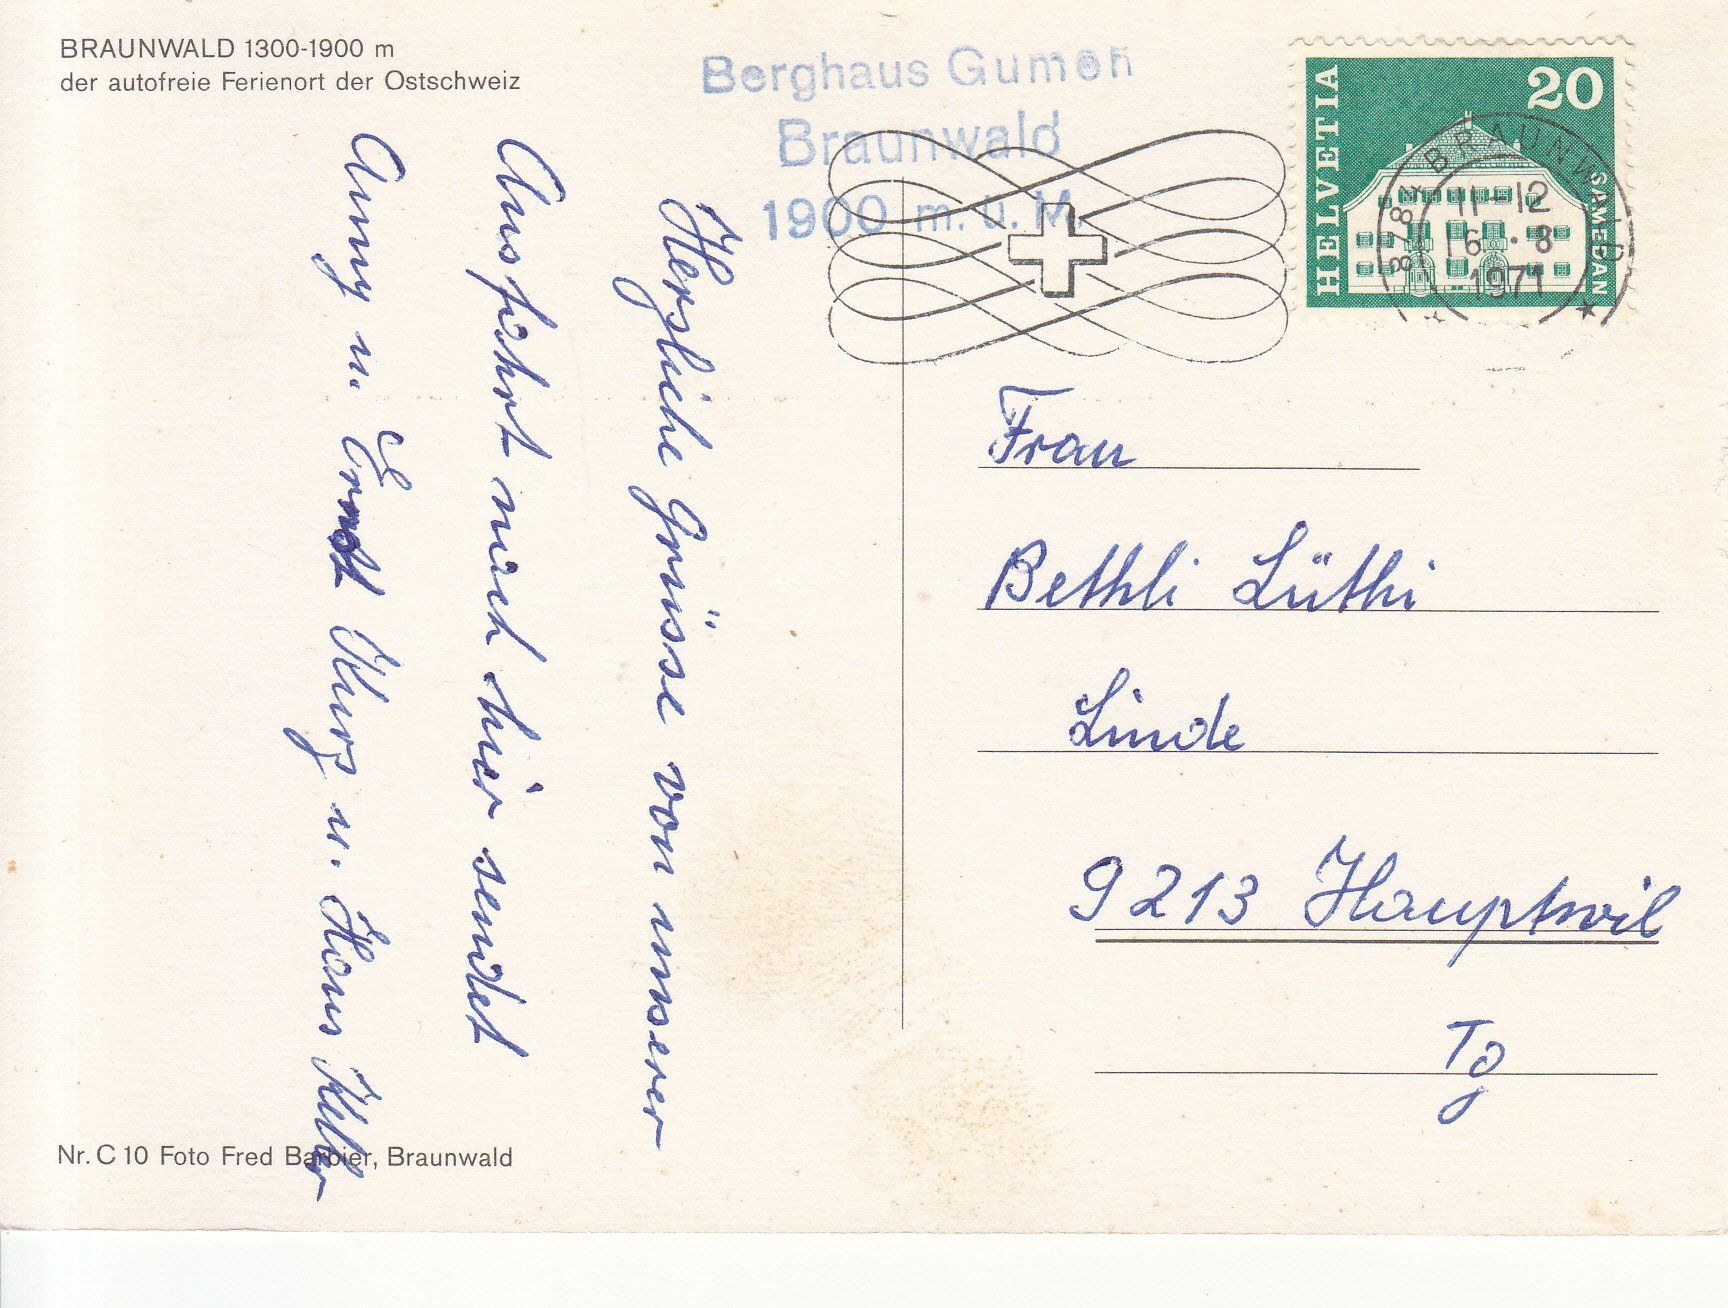 BRAUNWALD 1300-1900 m
der autofreie Ferienort der Ostschweiz
Berghaus Gumen
Braunwald
1900 m. ü. M.
HELVETIA
20
SAMEDAN
8784 BRAUNWALD
11-12
16.-8
1971
Herzliche Grüsse von unserer
Ausfahrt nach hier sendet
Anny u. Ernst Kurz u. Hans Keller
Frau
Bethli Lüthi
Linde
9213 Hauptwil
Tg
Nr. C 10 Foto Fred Barbier, Braunwald